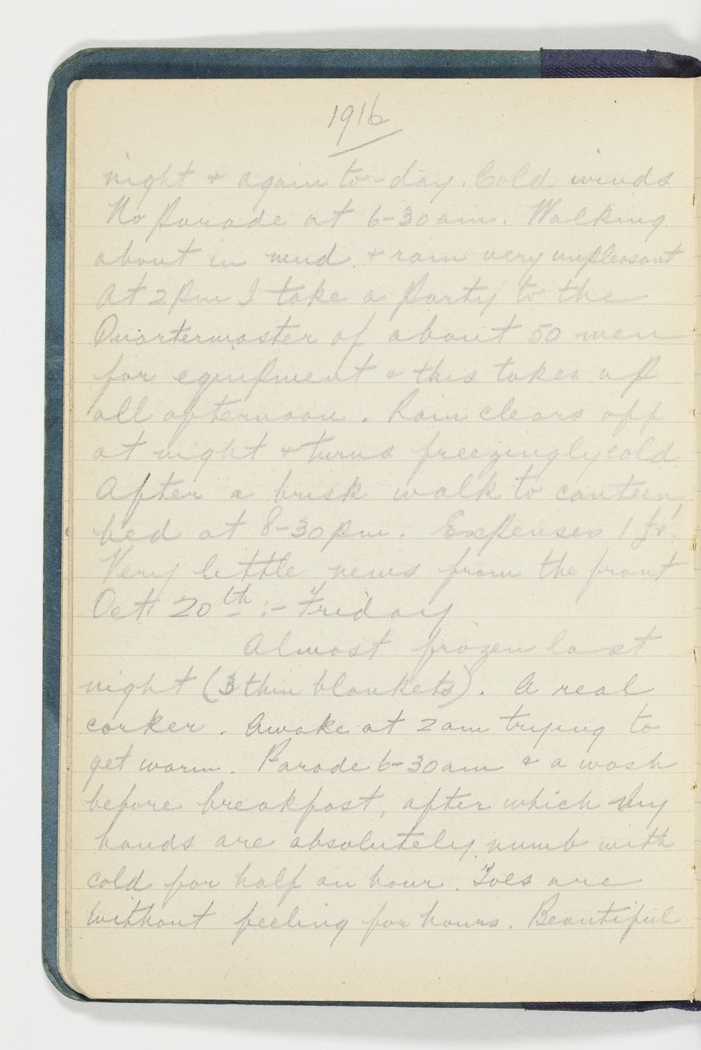 1916
night & again to-day. Cold winds
No Parade at 6-30am. Walking
about in mud & rain very unpleasant
At 2 Pm I take a Party to the
Quartermaster of about 50 men
for equipment & this takes up
all afternoon. Rain clears off
at night & turns freezingly cold
After a brisk walk to canteen,
bed at 8-30 Pm. Expenses 1 fr.
Very little news from the front
Oct 20th :- Friday
Almost frozen last
night (3 thin blankets). A real
corker. Awake at 2am trying to
get warm. Parade 6-30am & a wash
before breakfast, after which my
hands are absolutely numb with
cold for half an hour. Toes are
without feeling for hours. Beautiful